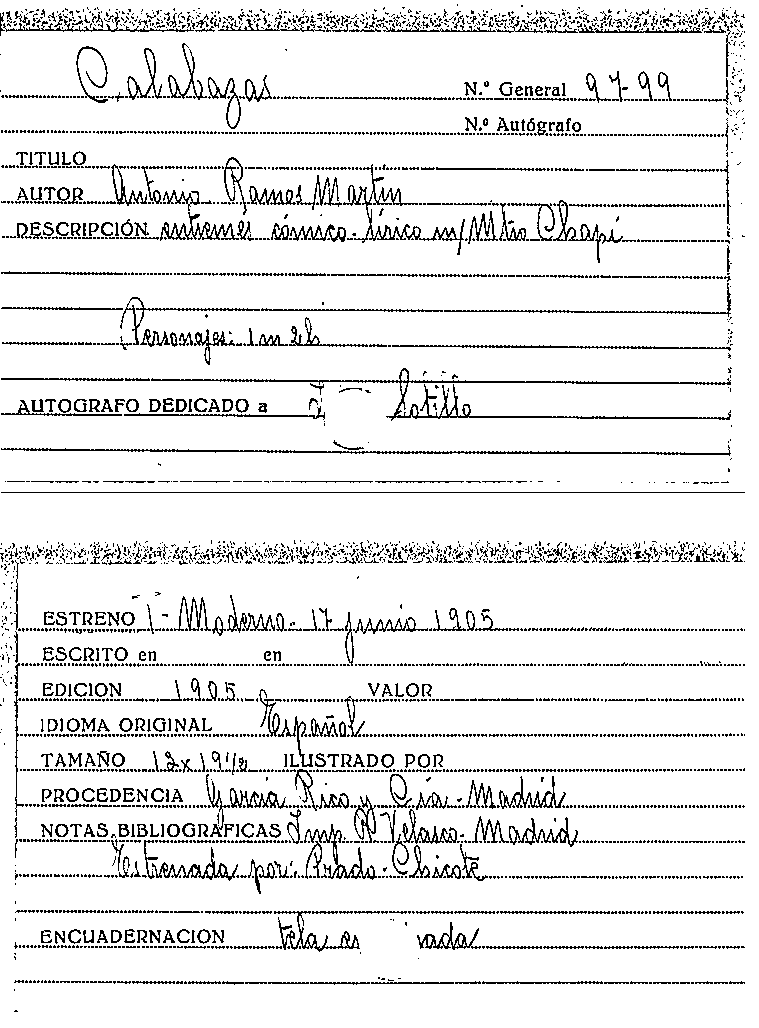 Calabazas
N.º General 97-99
N.º Autógrafo
TITULO
AUTOR Antonio Ramos Martín
DESCRIPCIÓN entremés cómico-lírico m/ Mtro Chapí
Personajes: 1 m 2 h
AUTOGRAFO DEDICADO a Sotillo
ESTRENO T- Moderno- 17 junio 1905
ESCRITO en en
EDICION 1905 VALOR
IDIOMA ORIGINAL Español
TAMAÑO 12 x 19 1/2 ILUSTRADO POR
PROCEDENCIA García Rico y Cía - Madrid
NOTAS BIBLIOGRAFICAS Imp. R Velasco - Madrid
Estrenada por: Prado-Chicote
ENCUADERNACION tela